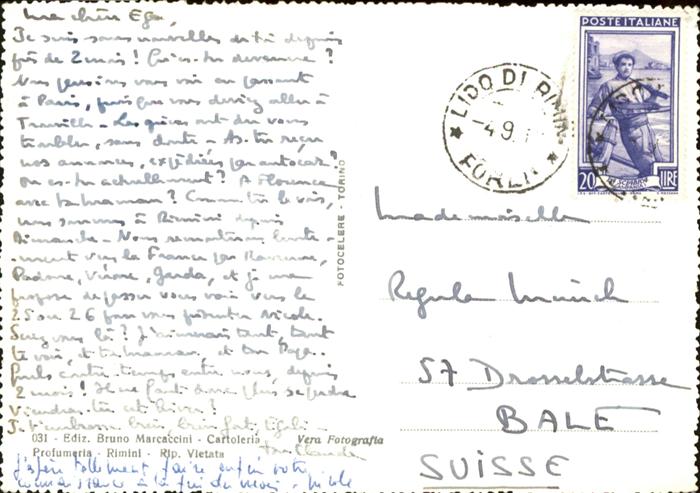 Ma chère Ega,
Je suis sans nouvelles de toi depuis
près de 2 mois ! Qu'es-tu devenue ?
Nous pensions vous voir en passant
à Paris, puisque vous deviez aller à
Trouville - Les grèves ont dû vous
troubler, sans doute - As-tu reçu
nos annonces, expédiées par autocar ?
Où es-tu actuellement ? A Florence
avec ta maman ? Comme tu le vois,
nous sommes à Rimini depuis
dimanche - Nous remonterons lente-
-ment vers la France par Ravenne,
Padoue, Vérone, Garda, et je me
propose de passer vous voir vers le
25 ou 26 pour vous présenter Nicole.
Serez vous là ? J'aimerais tant, tant
te voir, et ta maman, et ton Papa.
Quels contre-temps entre nous, depuis
2 mois ! Il ne faut plus se perdre
Viendras-tu cet hiver ?
Je t'embrasse bien, bien fort,
Jean Claude
J'espère tellement faire enfin votre
connaissance à la fin du mois - Nicole
031 - Ediz. Bruno Marcaccini - Cartoleria
Profumeria - Rimini - Rip. Vietata
Vera Fotografia
FOTOCELERE - TORINO
LIDO DI RIMINI
-4.9.
FORLI
POSTE ITALIANE
20 LIRE
Mademoiselle
Regula Münch
57 Drosselstrasse
BALE
SUISSE